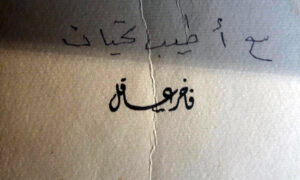 مع أطيب تحيات
فاخر عاقل